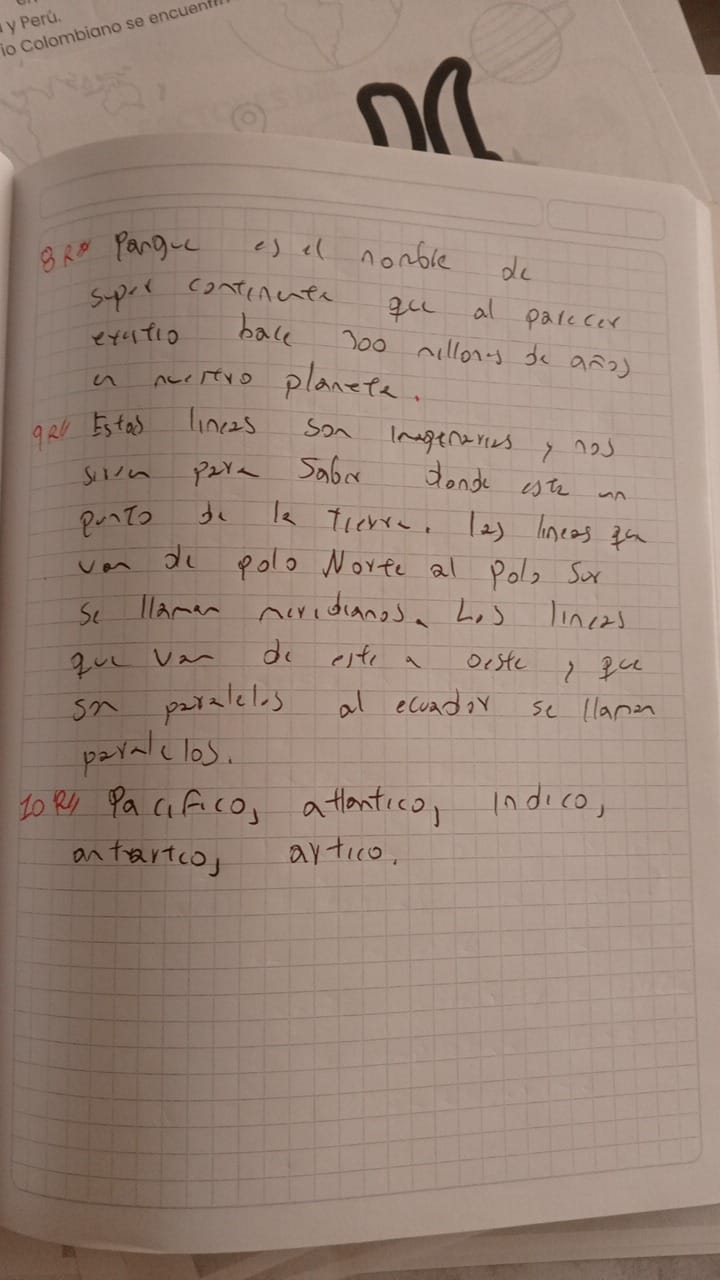 y Perú.
io Colombiano se encuentr
8R// Pangue es el nonble de
super continente que al parecer
existio hace 300 millones de años
en nuestro planeta.
9R// Estas lineas son Imagenarias, nos
sirven para Saber donde esta un
punto de la tierra. las lineas que
van de polo Norte al Polo Sur
se llaman meridianos. Las lineas
que van de este a oeste, que
son paralelos al ecuador se llaman
paralelos.
10R// Pacifico, atlantico, indico,
antartco, artico.